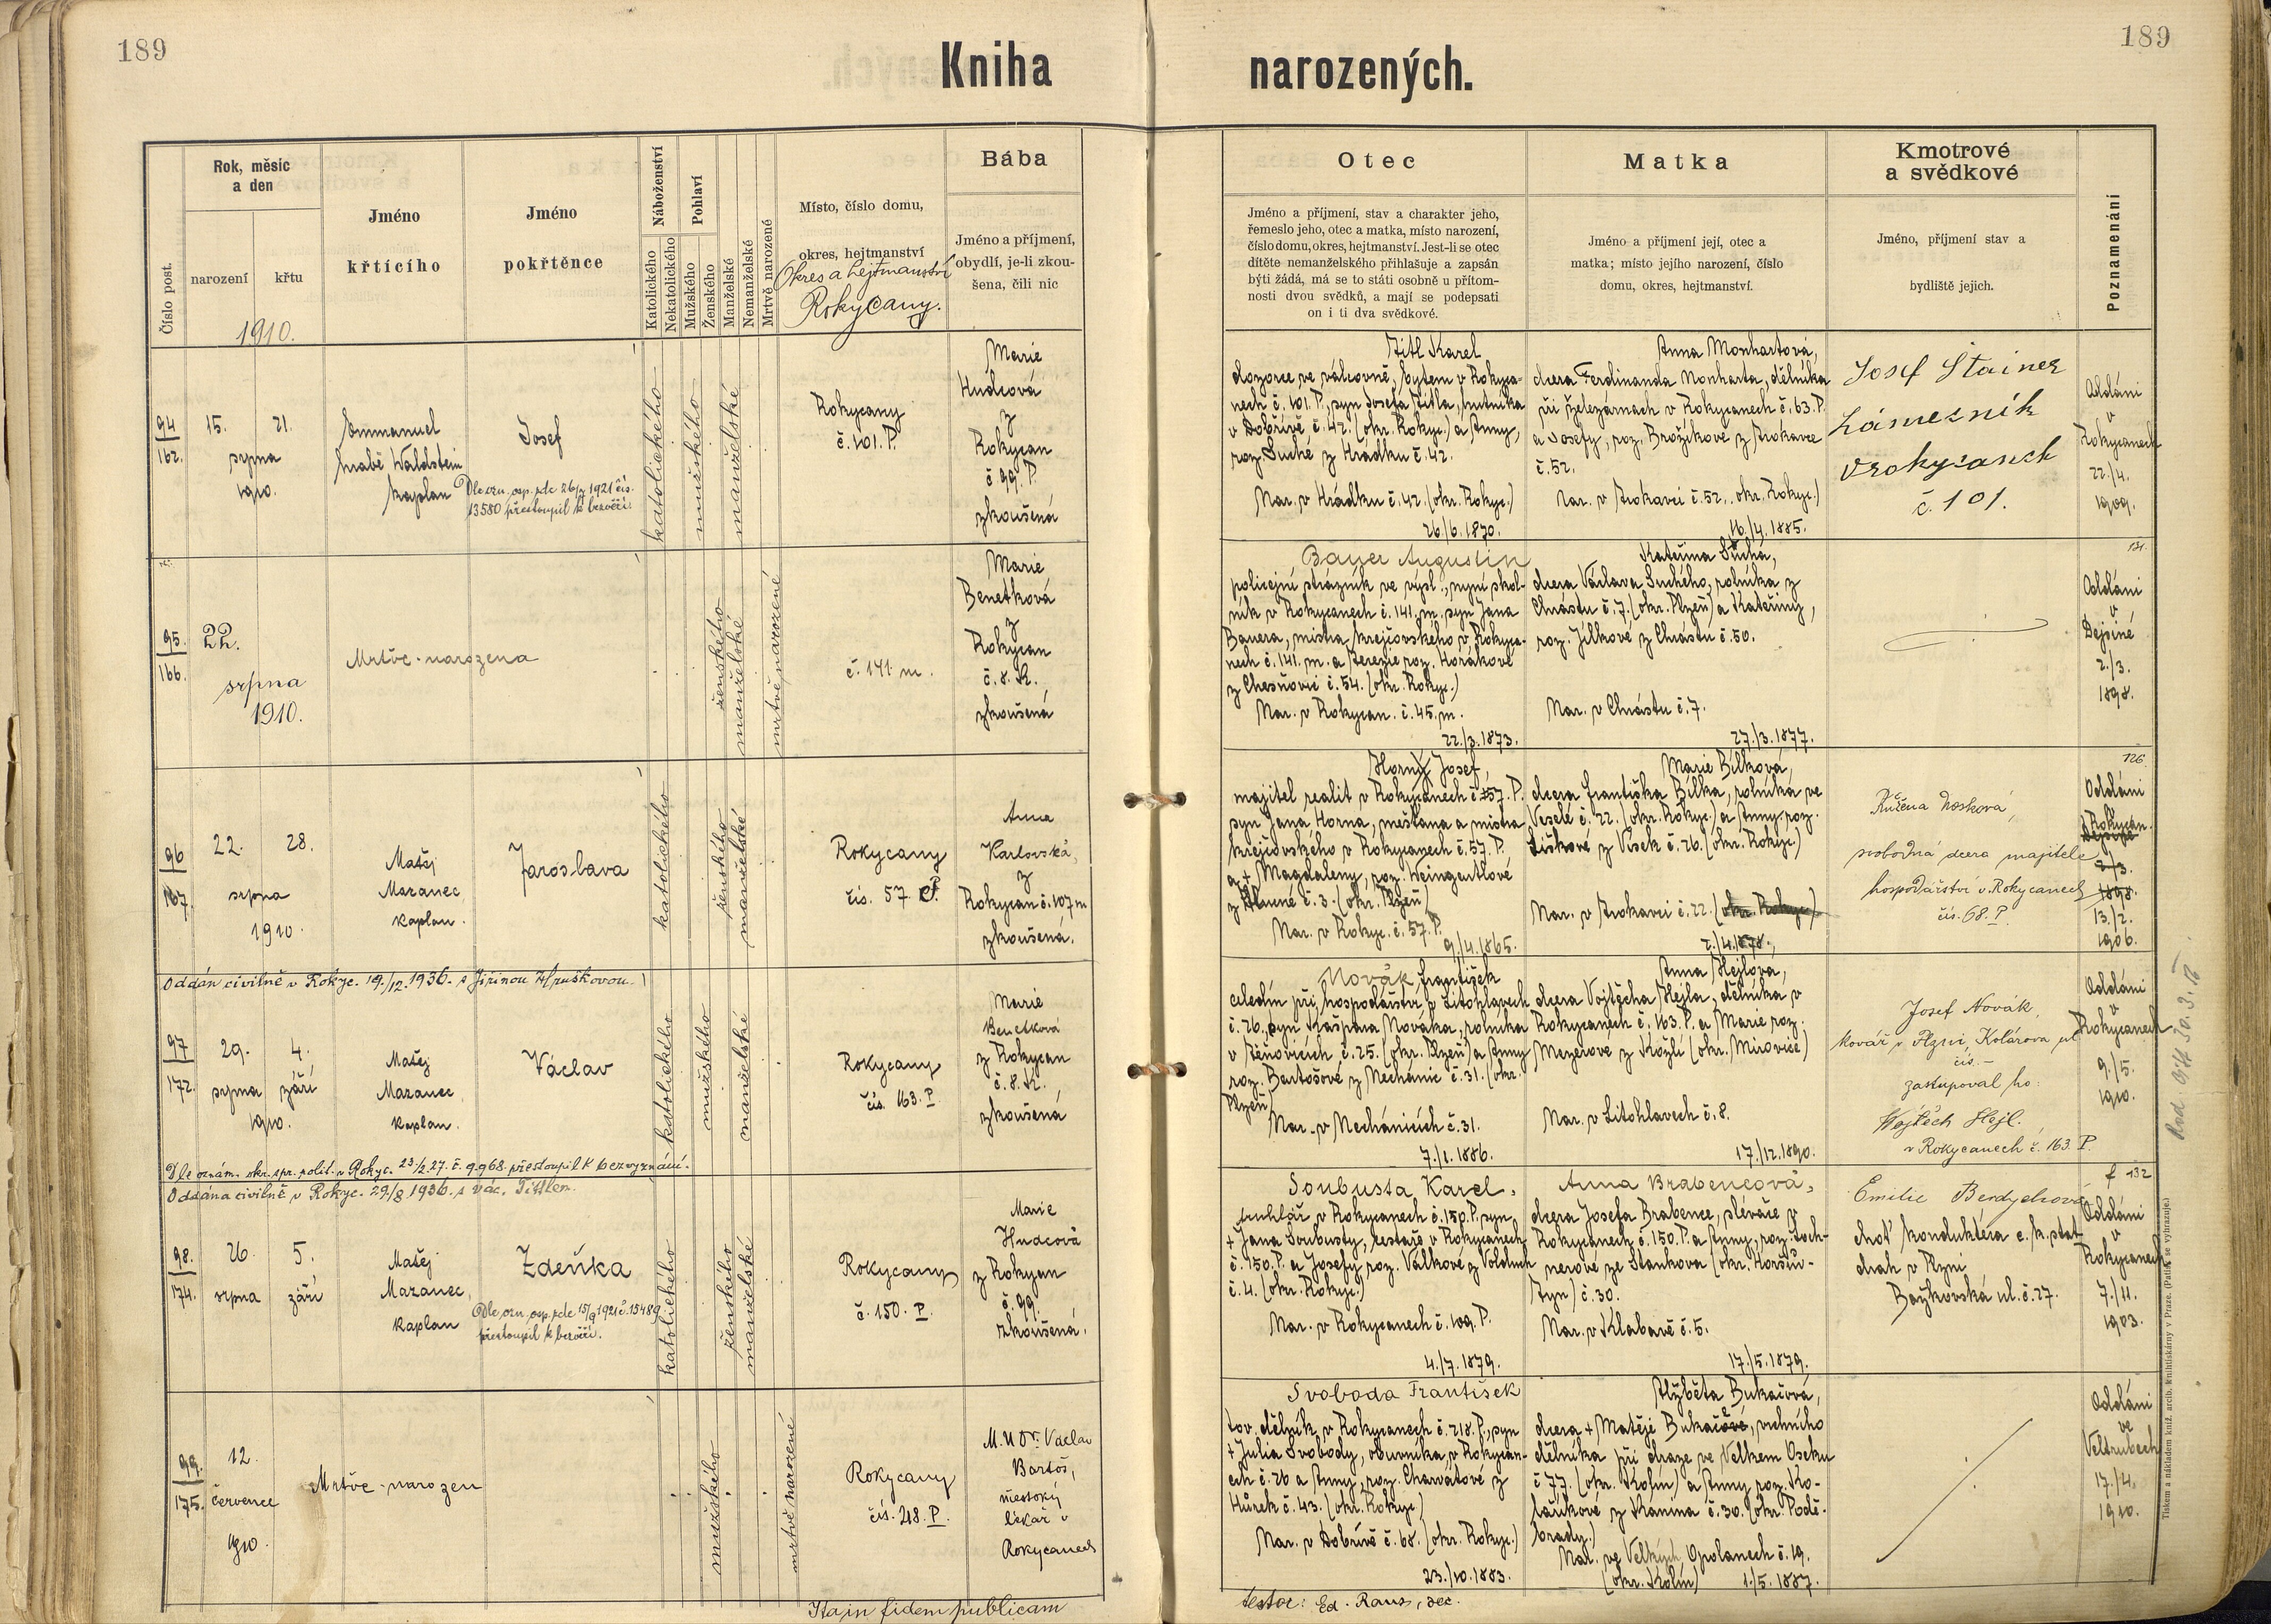 189
189
Kniha
narozených.
Číslo post.
Rok, měsíc
a den
narození
křtu
1910.
Jméno
křtícího
Jméno
pokřtěnce
Náboženství
Katolického
Nekatolického
Pohlaví
Mužského
Ženského
Manželské
Nemanželské
Mrtvě narozené
Místo, číslo domu,
okres, hejtmanství
Okres a hejtmanství
Rokycany.
Bába
Jméno a příjmení,
obydlí, je-li zkou-
šena, čili nic
Otec
Jméno a příjmení, stav a charakter jeho,
řemeslo jeho, otec a matka, místo narození,
číslo domu, okres, hejtmanství. Jest-li se otec
dítěte nemanželského přihlašuje a zapsán
býti žádá, má se to státi osobně u přítom-
nosti dvou svědků, a mají se podepsati
on i ti dva svědkové.
Matka
Jméno a příjmení její, otec a
matka; místo jejího narození, číslo
domu, okres, hejtmanství.
Kmotrové
a svědkové
Jméno, příjmení stav a
bydliště jejich.
Poznamenání
94
162.
15. 21.
srpna
1910.
Emmanuel
hrabě Waldstein
kaplan
Josef
Dle ozn. osp. pdc 26/7 1921 čís.
13580 přestoupil k bezvěří.
katolického
mužského
manželské
Rokycany
č. 101. P.
Marie
Hudcová
z
Rokycan
č. 99. P.
zkoušená
Titl Karel
dozorce ve válcovně, bytem v Rokyca-
nech č. 101. P., syn Josefa Titla, hutníka
v Dobřívě č. 42. (okr. Rokyc.) a Anny,
roz. Suché z Hrádku č. 42.
Nar. v Hrádku č. 42. (okr. Rokyc.)
26./6. 1870.
Anna Monhartová,
dcera Ferdinanda Monharta, dělníka
při železárnách v Rokycanech č. 63. P.
a Josefy, roz. Brožíkové z Strokavce
č. 52.
Nar. v Strokavci č. 52. okr. Rokyc.)
16./4. 1885.
Josef Štainer
Zámezník
v rokycanech
č. 101.
Oddáni
v
Rokycanech
22./4.
1909.
95.
166.
22.
srpna
1910.
Mrtvě-narozena
ženského
manželské
mrtvě narozené
č. 141 m.
Marie
Benetková
z
Rokycan
č. 8. K.
zkoušená
Bauer Augustin
policejní strážník ve výsl., nyní škol-
ník v Rokycanech č. 141. m., syn Jana
Bauera, mistra krejčovského v Rokyca-
nech č. 141. m. a Terezie roz. Horákové
z Chesňovic č. 54. (okr. Rokyc.)
Nar. v Rokycan. č. 45. m.
22./3. 1873.
Kateřina Suchá,
dcera Václava Suchého, rolníka z
Chrástu č. 7. (okr. Plzeň) a Kateřiny,
roz. Jílkové z Chrástu č. 50.
Nar. v Chrástu č. 7.
27./3. 1877.
131.
Oddáni
v
Dejšině
2./3.
1898.
96
167.
22. 28.
srpna
1910.
Matěj
Mazanec,
kaplan.
Jaroslava
katolického
ženského
manželské
Rokycany
čís. 57 P.
Anna
Karlovská,
z
Rokycan č. 107 m
zkoušená.
Horný Josef,
majitel realit v Rokycanech č. 57. P.
syn Jana Horna, měšťana a mistra
krejčovského v Rokycanech č. 57. P.
a + Magdaleny, roz. Weingartlové
z č. 3. (okr. Plzeň)
Nar. v Rokyc. č. 57. P.
9./4. 1865.
Marie Bílková,
dcera Františka Bílka, rolníka ve
Veselé č. 22. (okr. Rokyc.) a Anny roz.
Liškové z Vísek č. 26. (okr. Rokyc.)
Nar. v Strokavci č. 22. (okr. Rokyc.)
2./4. 1878.
Růžena Nosková,
svobodná dcera majitele
hospodářství v Rokycanech
čís. 68. P.
126.
Oddáni
Rokycan.
Dejšině
2/3.
1898.
13./2.
1906.
Oddán civilně v Rokyc. 19./12. 1936. s Jiřinou Hruškovou.
97
172.
29. 4.
srpna září
1910.
Matěj
Mazanec,
kaplan.
Václav
katolického
mužského
manželské
Rokycany
čís. 163. P.
Marie
Benetková
z Rokycan
č. 8. K.
zkoušená
Novák František
čeledín při hospodářství v Litohlavech
č. 26., syn Kašpara Nováka, rolníka
v Těňovicích č. 25. (okr. Plzeň) a Anny
roz. Bartošové z Nechánic č. 31. (okr.
Plzeň)
Nar. v Nechánicích č. 31.
7./1. 1886.
Anna Hejlová,
dcera Vojtěcha Hejla, dělníka v
Rokycanech č. 163. P. a Marie roz.
Mezerové z Kožlí (okr. Mirovice)
Nar. v Litohlavech č. 8.
17./12. 1890.
Josef Novák,
kovář v Plzni, Kolárova ul
čís. –
zastupoval ho:
Vojtěch Hejl.
v Rokycanech č. 163. P.
Oddáni
v
Rokycanech
9./5.
1910.
Dle oznám. okr. spr. polit. v Rokyc. 23/2. 27. č. 9.968. přestoupil k bezvyznání.
Oddána civilně v Rokyc. 29./8. 1936. s Vác. Tittlem.
98.
174.
26. 5.
srpna září
Matěj
Mazanec,
kaplan
Zdeňka
Dle ozn. osp. pdc 15/9 1921 č. 15489
přestoupil k bezvěří.
katolického
ženského
manželské
Rokycany
č. 150. P.
Marie
Hudcová
z Rokycan
č. 99.
zkoušená.
Soubusta Karel,
truhlář v Rokycanech č. 150. P., syn
+ Jana Soubusty, cestaře v Rokycanech
č. 150. P. a Josefy roz. Válkové z Volduch
č. 4. (okr. Rokyc.)
Nar. v Rokycanech č. 109. P.
4./7. 1879.
Anna Brabencová,
dcera Josefa Brabence, slévače v
Rokycanech č. 150. P. a Anny, roz. Toch-
nerové ze Stankova (okr. Horšův-
Týn) č. 30.
Nar. v Klabavě č. 5.
17./5. 1879.
Emilie Berdychová
choť konduktéra c. k. stat.
drah v Plzni
Božkovská ul. č. 27.
132
Oddáni
v
Rokycanech
7./11.
1903.
99.
175.
12.
července
1910.
Mrtvě-narozen
mužského
mrtvě narozené
Rokycany
čís. 218. P.
M.U.Dr. Václav
Bartoš,
městský
lékař v
Rokycanech
Svoboda František
tov. dělník v Rokycanech č. 218. P., syn
+ Julia Svobody, obuvníka v Rokycan-
ech č. 26 a Anny, roz. Charvátové z
Hůrek č. 43. (okr. Rokyc.)
Nar. v Dobřívě č. 68. (okr. Rokyc.)
23./10. 1883.
Alžběta Bukačová,
dcera + Matěje Bukače, vrchního
dělníka při dráze ve Velkém Oseku
č 77. (okr. Kolín) a Anny roz. Ko-
lářkové z Kanína č. 30. (okr. Podě-
brady.)
Nar. ve Velkých Opolanech č. 19.
(okr. Kolín) 1./5. 1887.
Oddáni
ve
Veltrubech
17./4.
1910.
Ita in fidem publicam
testor: Ed. Raus, dec.
Tiskem a nákladem kníž. arcib. knihtiskárny v Praze. (Patisk se vyhrazuje.)